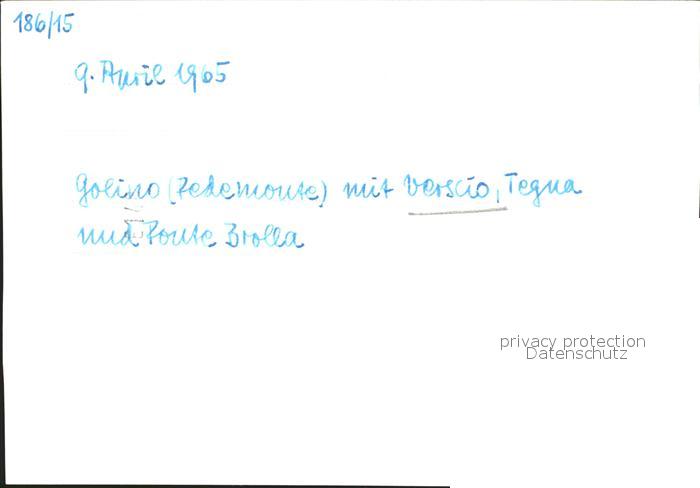 186/15
9. April 1965
Golino (Pedemonte) mit Verscio, Tegna
und Ponte Brolla
privacy protection
Datenschutz